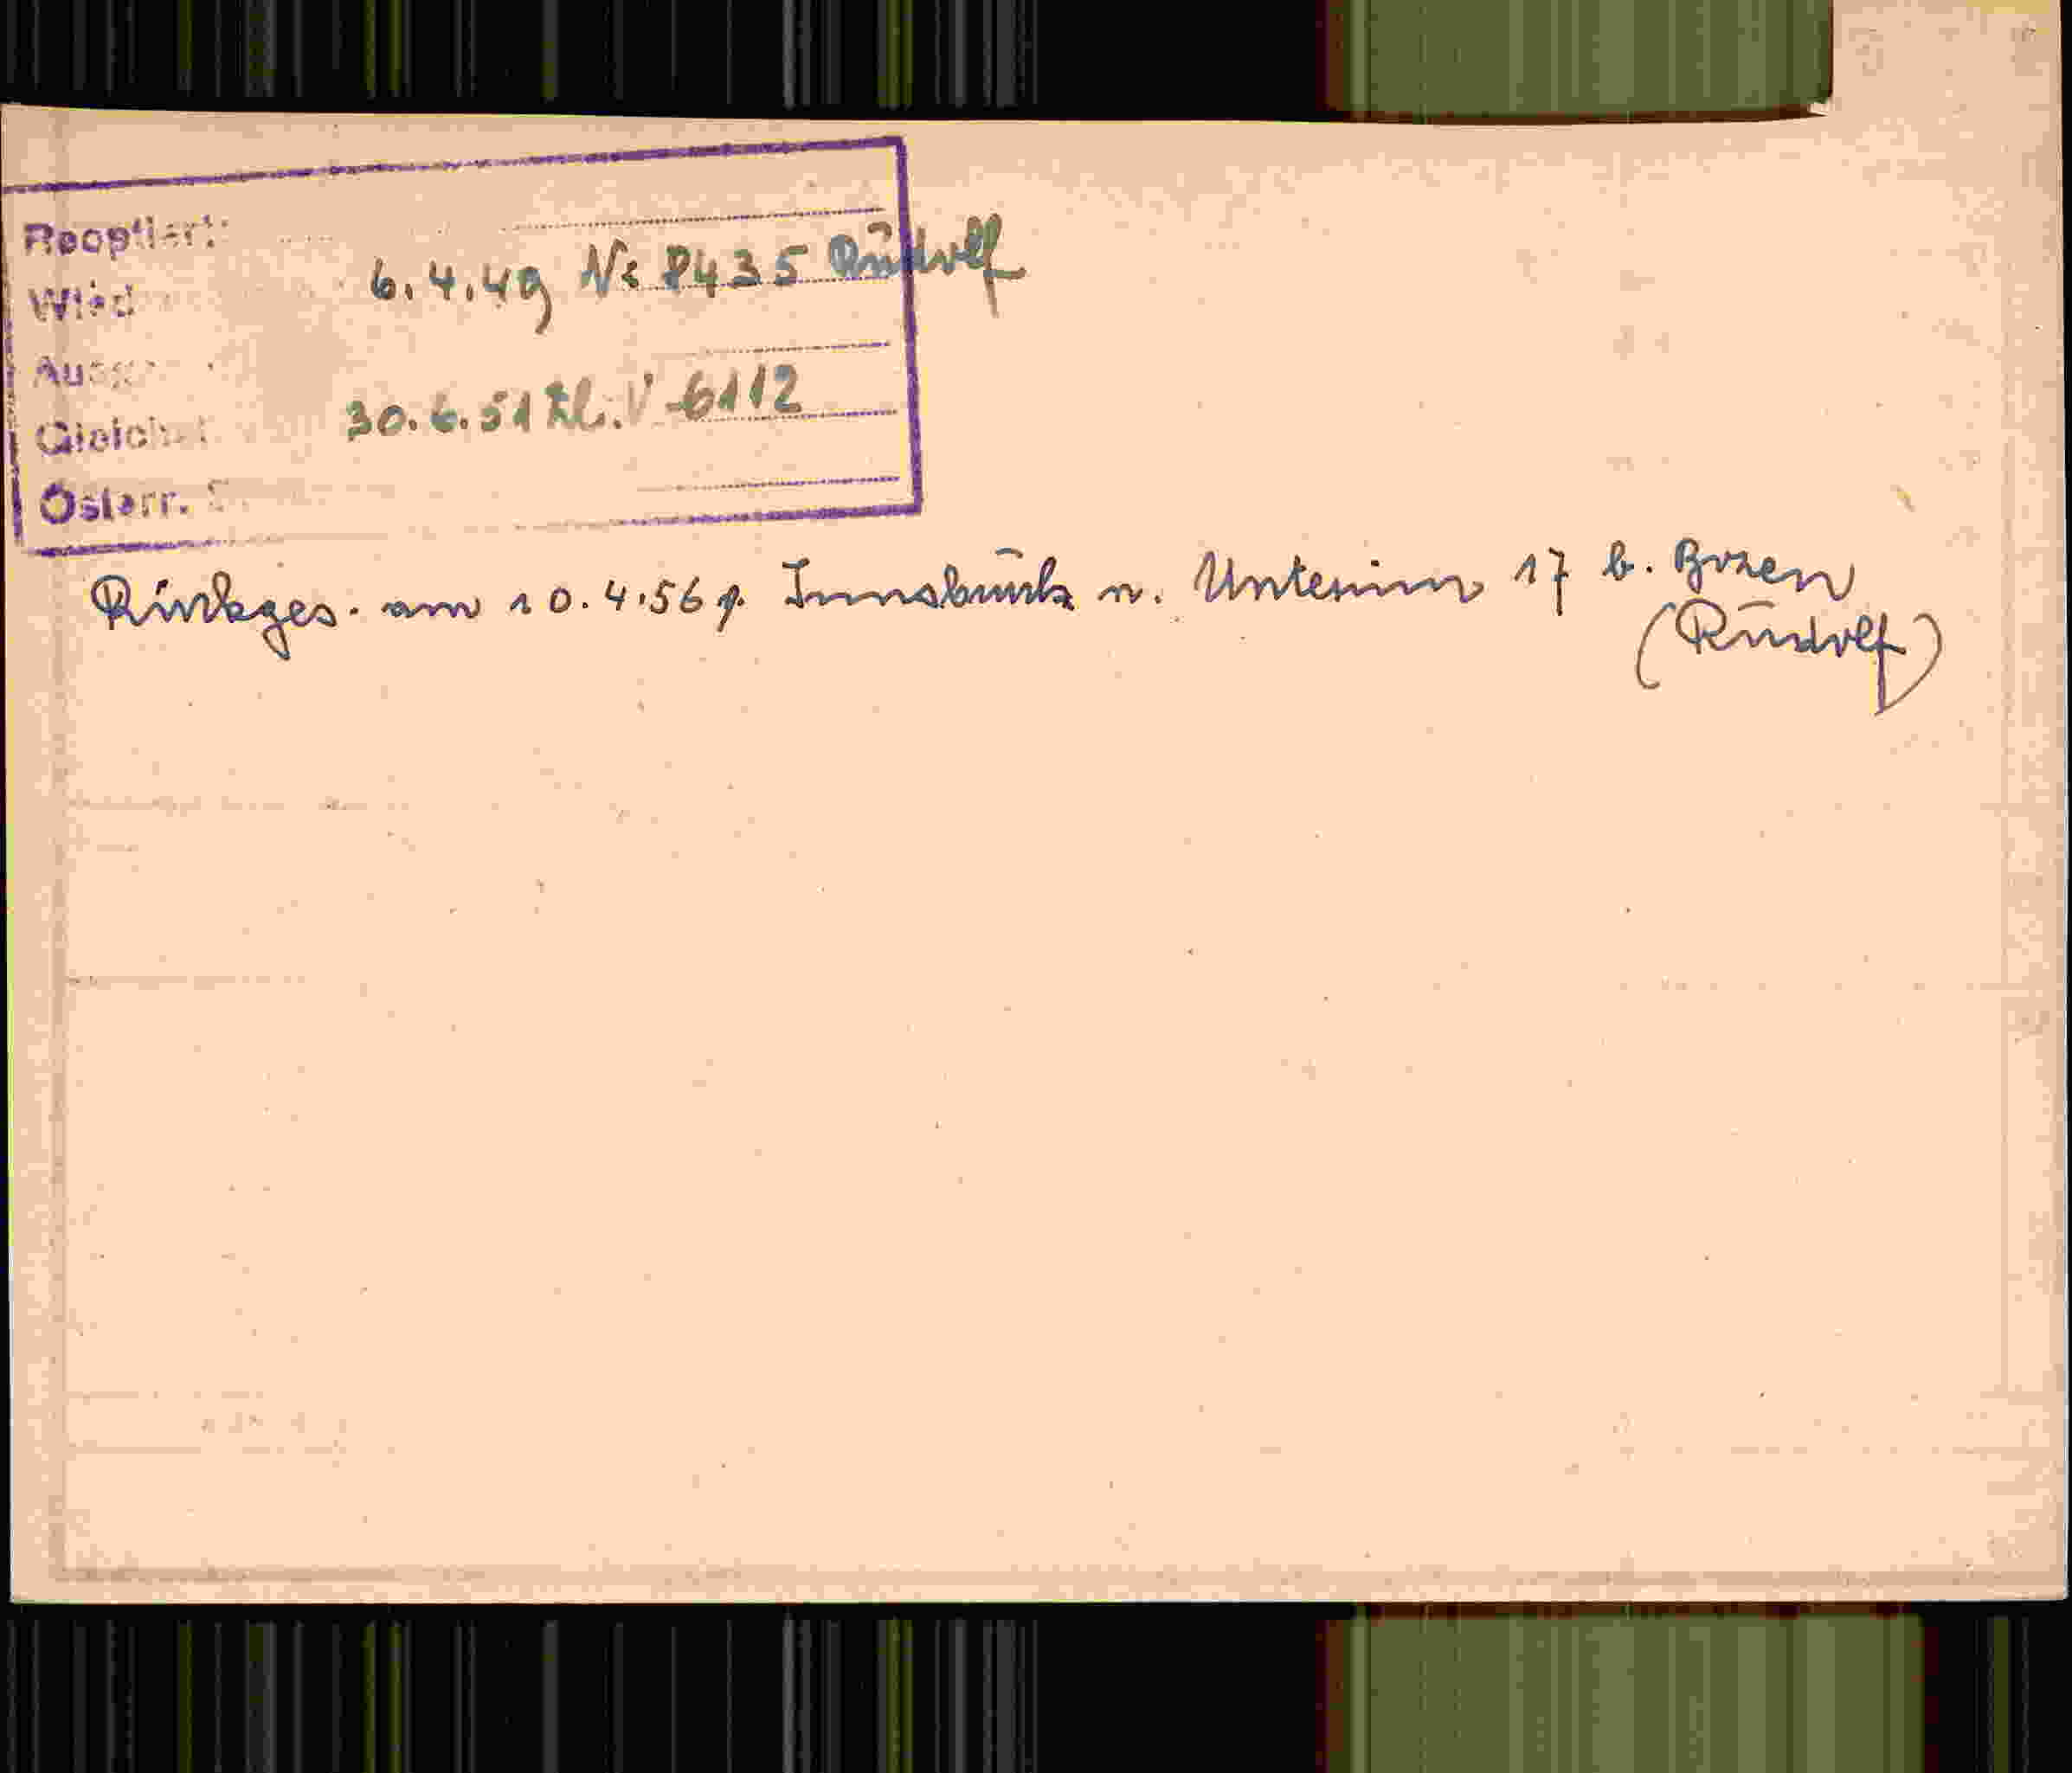 Reoptiert:
6.4.49 Nr 8435 Rudolf
30.6.51 Zl. V-6112
Österr.
Rückges. am 10.4.56 p. Innsbruck n. Unterinn 17 b. Bozen
(Rudolf)